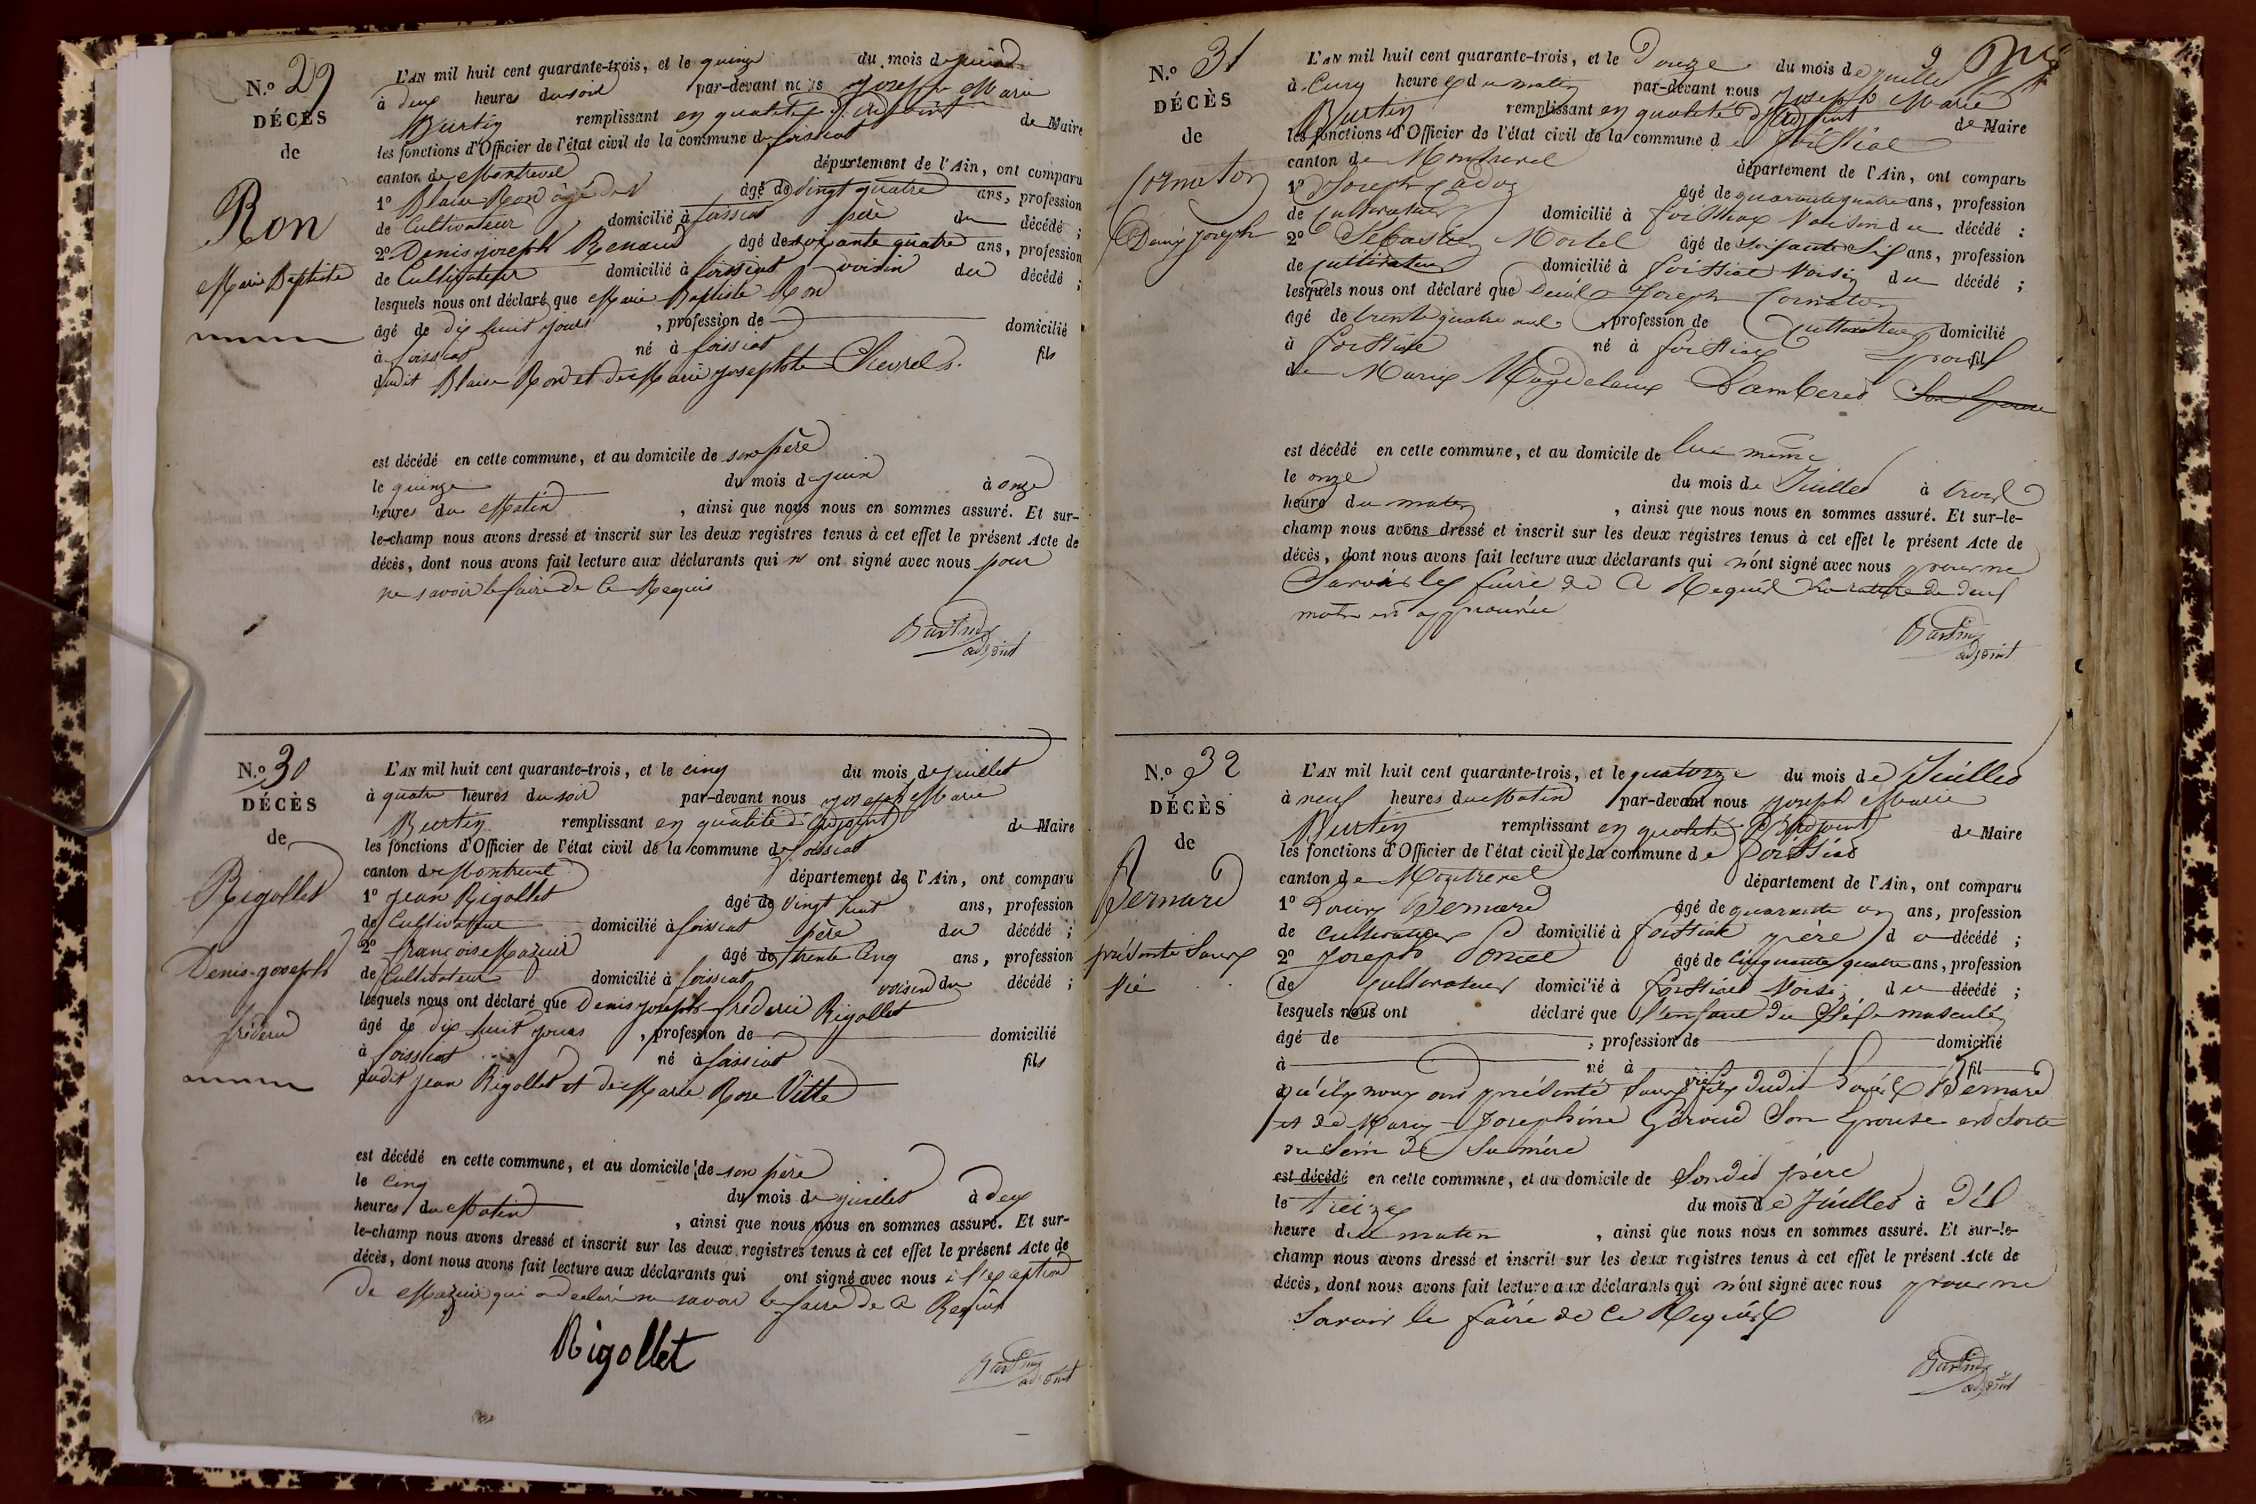 N.° 29
DÉCÈS
de
Ron
Marie Baptiste
L'AN mil huit cent quarante-trois, et le quinze du mois de juin
à deux heures du soir par-devant nous Joseph Marie
Burtin remplissant en qualité d'adjoint de Maire
les fonctions d'Officier de l'état civil de la commune de foissiat
canton de Montrevel département de l'Ain, ont comparu
1° Blaise Ron âgé de vingt quatre ans, profession
de Cultivateur domicilié à foissiat père du décédé ;
2° Denis joseph Renaud âgé de soixante quatre ans, profession
de Cultivateur domicilié à foissiat voisin du décédé ;
lesquels nous ont déclaré que Marie Baptiste Ron
âgé de dix huit jours , profession de domicilié
à foissiat né à foissiat fils
dudit Blaise Ron et de Marie josephte Chevrel
est décédé en cette commune, et au domicile de son père
le quinze du mois de juin à onze
heures du Matin , ainsi que nous nous en sommes assuré. Et sur-
le-champ nous avons dressé et inscrit sur les deux registres tenus à cet effet le présent Acte de
décès, dont nous avons fait lecture aux déclarants qui n'ont signé avec nous pour
ne savoir le faire de ce Requis
Burtin
adjoint
N.° 30
DÉCÈS
de
Rigollet
Denis-joseph
fréderic
L'AN mil huit cent quarante-trois, et le cinq du mois de juillet
à quatre heures du soir par-devant nous joseph Marie
Burtin remplissant en qualité d'adjoint de Maire
les fonctions d'Officier de l'état civil de la commune de foissiat
canton de Montrevel département de l'Ain, ont comparu
1° jean Rigollet âgé de vingt huit ans, profession
de Cultivateur domicilié à foissiat père du décédé ;
2° françois Mazuir âgé de trente Cinq ans, profession
de Cultivateur domicilié à foissiat voisin du décédé ;
lesquels nous ont déclaré que Denis joseph fréderic Rigollet
âgé de dix huit jours , profession de domicilié
à foissiat né à foissiat fils
dudit jean Rigollet et de Marie Rose Vitte
est décédé en cette commune, et au domicile de son père
le Cinq du mois de juillet à deux
heures du Matin , ainsi que nous nous en sommes assuré. Et sur-
le-champ nous avons dressé et inscrit sur les deux registres tenus à cet effet le présent Acte de
décès, dont nous avons fait lecture aux déclarants qui ont signé avec nous à l'exception
de Mazuir qui a declaré ne savoir le faire de ce Requis
Rigollet
Burtin
adjoint
N.° 31
DÉCÈS
de
Cornaton
Denis Joseph
L'AN mil huit cent quarante-trois, et le Douze du mois de juillet
à Cinq heures du matin par-devant nous Joseph Marie
Burtin remplissant en qualité d'adjoint de Maire
les fonctions d'Officier de l'état civil de la commune de foissiat
canton de Montrevel département de l'Ain, ont comparu
1° Joseph Cadoz âgé de quarante quatre ans, profession
de Cultivateur domicilié à foissiat Voisin du décédé ;
2° Sébastien Mortel âgé de soixante Six ans, profession
de Cultivateur domicilié à foissiat Voisin du décédé ;
lesquels nous ont déclaré que Denis Joseph Cornaton
âgé de trente quatre ans , profession de Cultivateur domicilié
à foissiat né à foissiat fil
de Marie Magdelaine Dambered Son Epouse
est décédé en cette commune, et au domicile de lui même
le onze du mois de Juillet à trois
heure du matin , ainsi que nous nous en sommes assuré. Et sur-le-
champ nous avons dressé et inscrit sur les deux registres tenus à cet effet le présent Acte de
décès, dont nous avons fait lecture aux déclarants qui n'ont signé avec nous pour ne
Savoir le faire de ce Requis la rature de deux
mots est approuvée
Burtin
adjoint
N.° 32
DÉCÈS
de
Bernard
présenté Sans
Vie
L'AN mil huit cent quarante-trois, et le quatorze du mois de Juillet
à neuf heures du Matin par-devant nous Joseph Marie
Burtin remplissant en qualité d'adjoint de Maire
les fonctions d'Officier de l'état civil de la commune de foissiat
canton de Montrevel département de l'Ain, ont comparu
1° Louis Bernard âgé de quarante un ans, profession
de Cultivateur domicilié à foissiat père d décédé ;
2° Joseph âgé de Cinquante quatre ans, profession
de Cultivateur domicilié à foissiat Voisin du décédé ;
lesquels nous ont déclaré que l'enfant du Séxe masculin
âgé de , profession de domicilié
à né à fil
qu'ils nous ont présenté Sans vie fils dudit Louis Bernard
et de Marie Josephine Géroud Son Epouse est Sorti
du Sein de Sa mère
est décédé en cette commune, et au domicile de Sondit père
le treize du mois de Juillet à Dix
heure du matin , ainsi que nous nous en sommes assuré. Et sur-le-
champ nous avons dressé et inscrit sur les deux registres tenus à cet effet le présent Acte de
décès, dont nous avons fait lecture aux déclarants qui n'ont signé avec nous pour ne
Savoir le faire de ce Requis
Burtin
adjoint